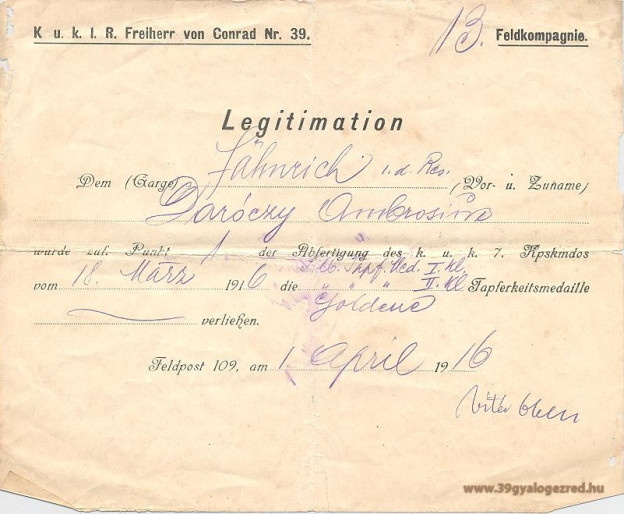 K u. k. I. R. Freiherr von Conrad Nr. 39.
13. Feldkompagnie.
Legitimation
Dem (Garge) Fähnrich i. d. Res. (Vor- u. Zuname)
Daróczy Ambrosius
wurde zuf. Punkt 1 der Abfertigung des k. u. k. 7. Kpskmdos
Silb. Tapf. Med. I. Kl.
vom 18. März 1916 die " " " II. Kl Tapferkeitsmedaille
Goldene
verliehen.
Feldpost 109, am 1. April 1916
www.39gyalogezred.hu